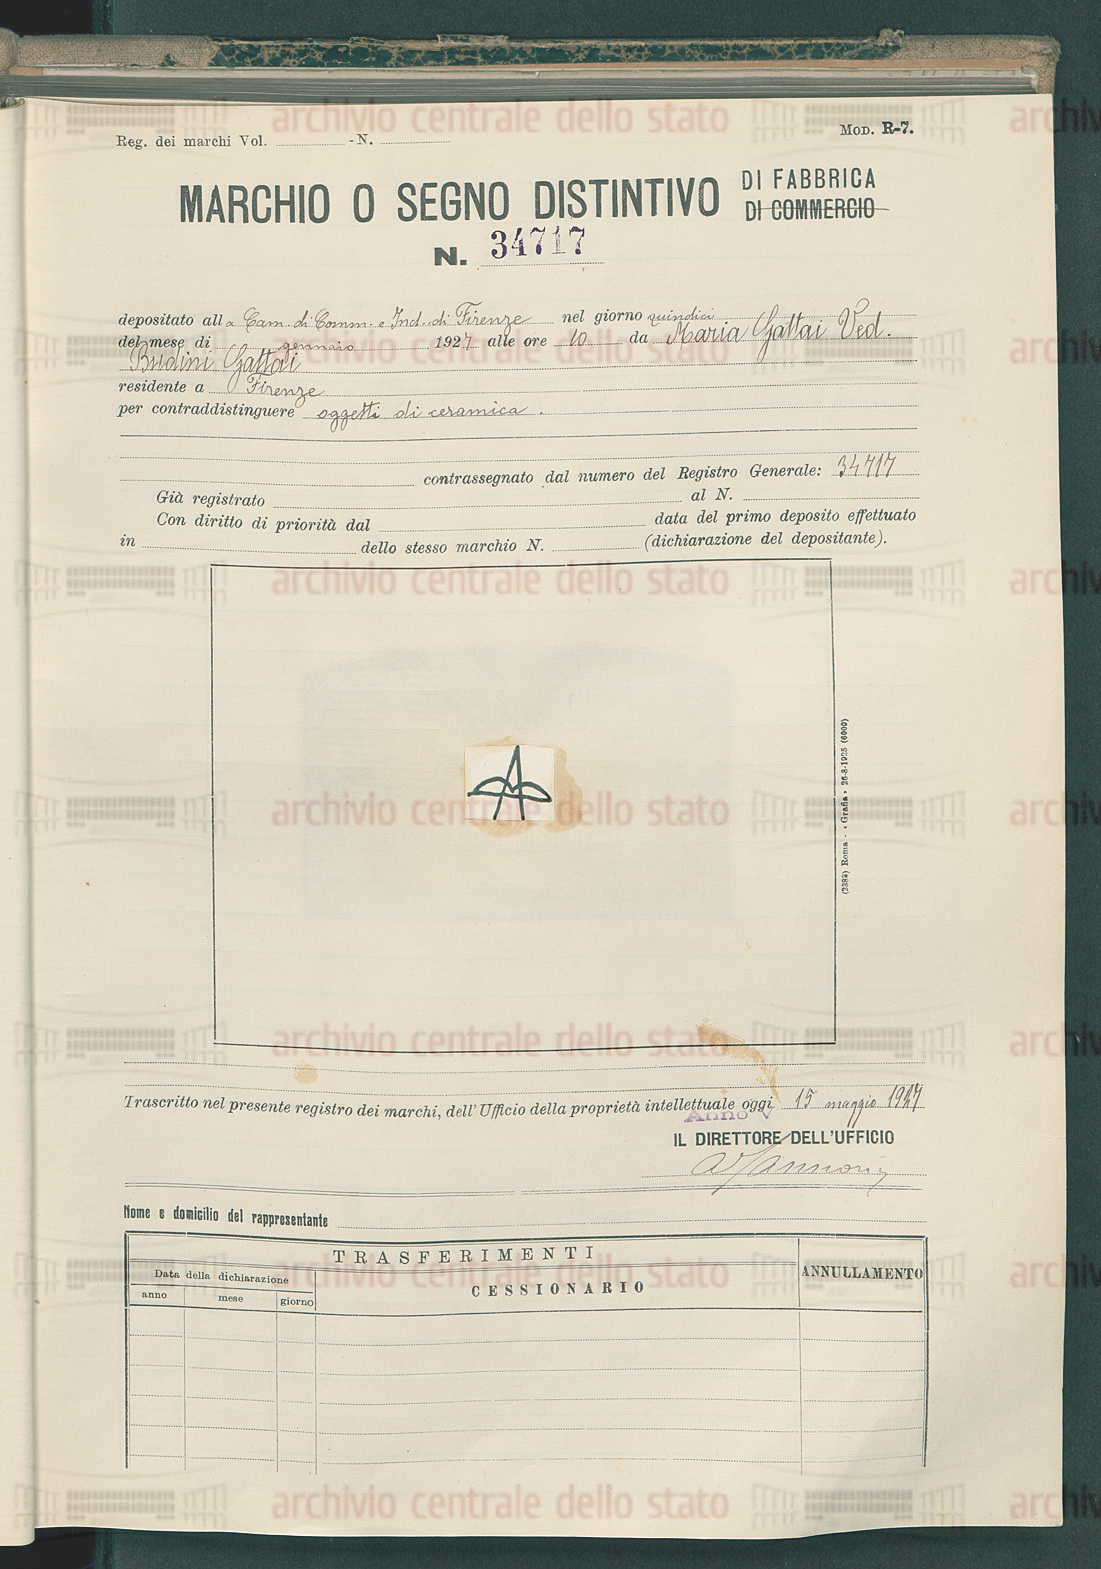 Reg. dei marchi Vol. - N.
MOD. R-7.
MARCHIO O SEGNO DISTINTIVO DI FABBRICA
DI COMMERCIO
N. 34717
depositato alla Cam. di Comm. e Ind. di Firenze nel giorno quindici
del mese di gennaio 1927 alle ore 10 da Maria Gattai Ved.
Budini Gattai
residente a Firenze
per contraddistinguere oggetti di ceramica.
contrassegnato dal numero del Registro Generale: 34717
Già registrato al N.
Con diritto di priorità dal data del primo deposito effettuato
in dello stesso marchio N. (dichiarazione del depositante).
(2383) Roma - «Grafia» 26-8-1925 (6000)
Trascritto nel presente registro dei marchi, dell'Ufficio della proprietà intellettuale oggi 15 maggio 1927
Anno V
IL DIRETTORE DELL'UFFICIO
Nome e domicilio del rappresentante
TRASFERIMENTI
ANNULLAMENTO
Data della dichiarazione
CESSIONARIO
anno mese giorno
archivio centrale dello stato
archivio centrale dello stato
archivio centrale dello stato
archivio centrale dello stato
archivio centrale dello stato
archivio centrale dello stato
archivio centrale dello stato